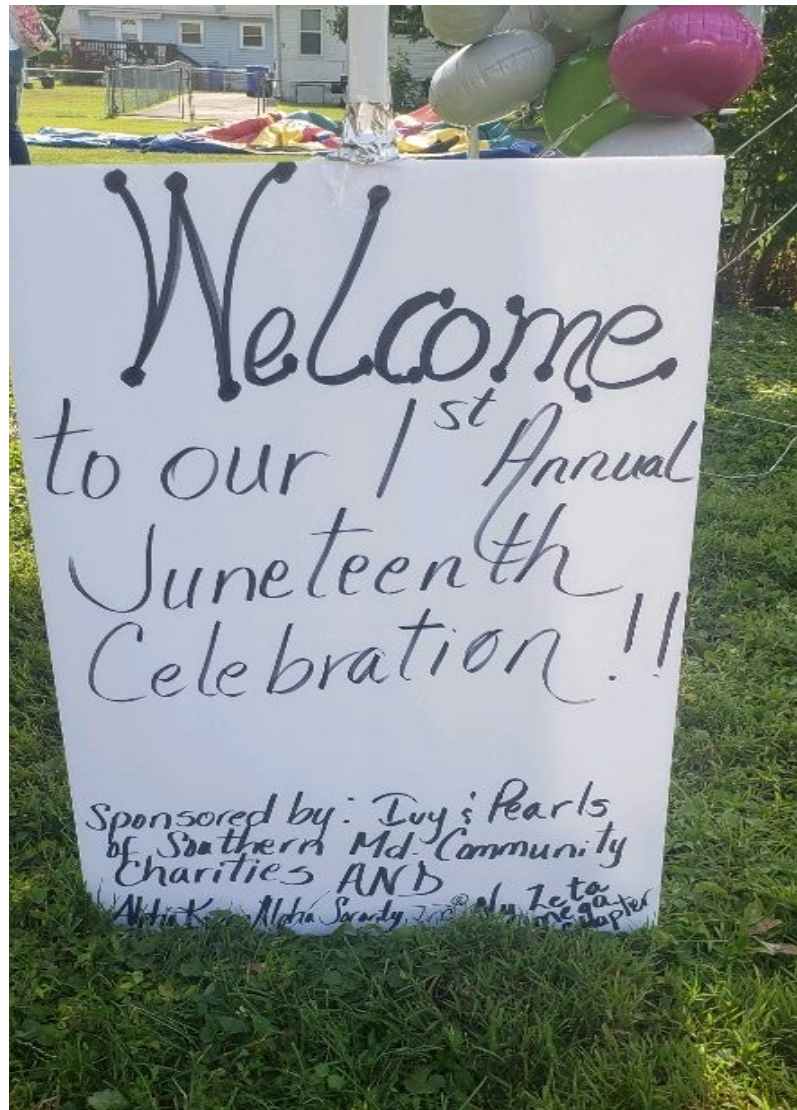 Welcome
to our 1st Annual
Juneteenth
Celebration!!
Sponsored by: Ivy & Pearls
of Southern Md. Community
Charities AND
Alpha Kappa Alpha Sorority, Inc.® Nu Zeta
Omega
Chapter